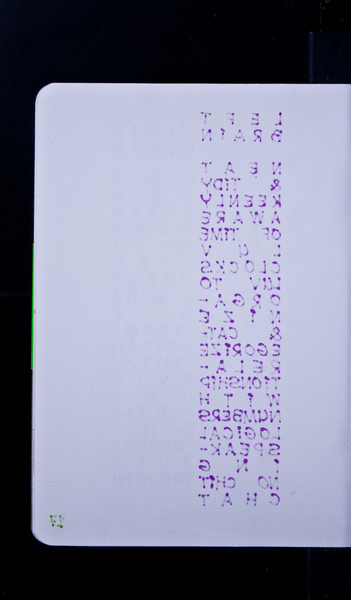 LEFT
BRAIN
NEAT
& TIDY
KEENLY
AWARE
OF TIME
CLOCKS
LUV TO
ORGA-
NINE
& CAT-
EGORIZE
RELA-
TIONSHIP
WITH
NUMBERS
LOGICAL
SPEAK-
ING
NO CHIT
CHAT